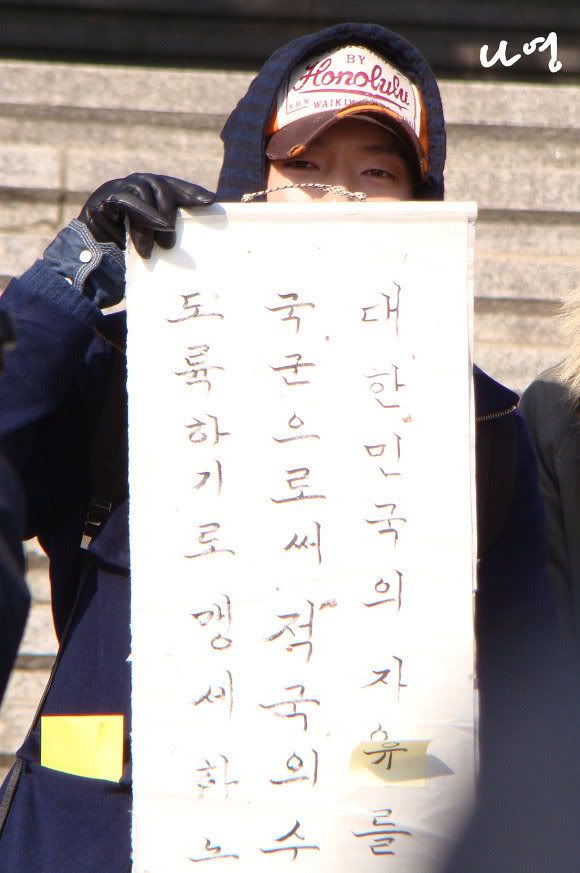 BY
Honolulu
S.H.W WAIKIKI
대한민국의 자유를
국군으로써 적국의 수
도륙하기로 맹세하노